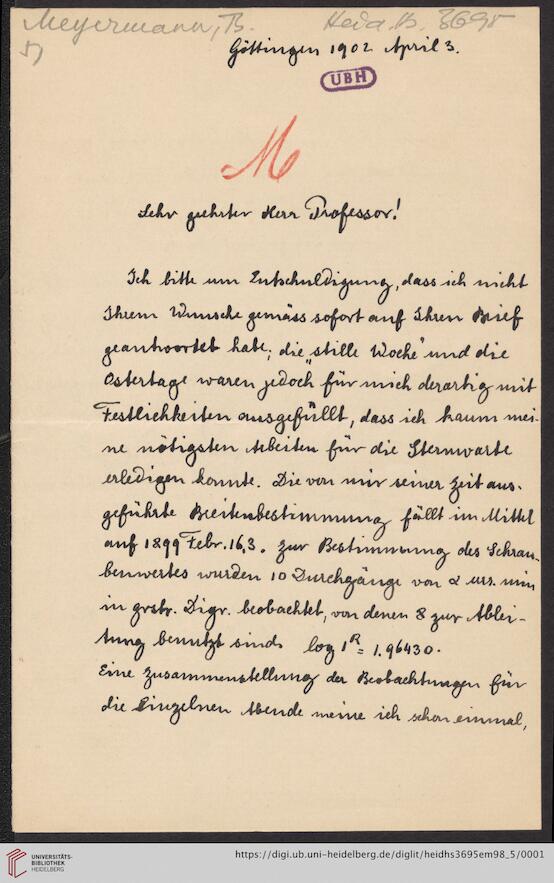 Meyermann, B.
Heid. Hs. 3695
5)
Göttingen 1902 April 3.
UBH
M
Sehr geehrter Herr Professor!
Ich bitte um Entschuldigung, dass ich nicht
Ihrem Wunsche gemäss sofort auf Ihren Brief
geantwortet habe; die „stille Woche" und die
Ostertage waren jedoch für mich derartig mit
Festlichkeiten ausgefüllt, dass ich kaum mei-
ne nötigsten Arbeiten für die Sternwarte
erledigen konnte. Die von mir seiner Zeit aus-
geführte Breitenbestimmung fällt im Mittel
auf 1899 Febr. 16,3. Zur Bestimmung des Schrau-
benwertes wurden 10 Durchgänge von α urs. min
in grstr. Digr. beobachtet, von denen 8 zur Ablei-
tung benutzt sind. log 1R = 1.96430.
Eine Zusammenstellung der Beobachtungen für
die Einzelnen Abende meine ich schon einmal,
UNIVERSITÄTS-
BIBLIOTHEK
HEIDELBERG
https://digi.ub.uni-heidelberg.de/diglit/heidhs3695em98_5/0001